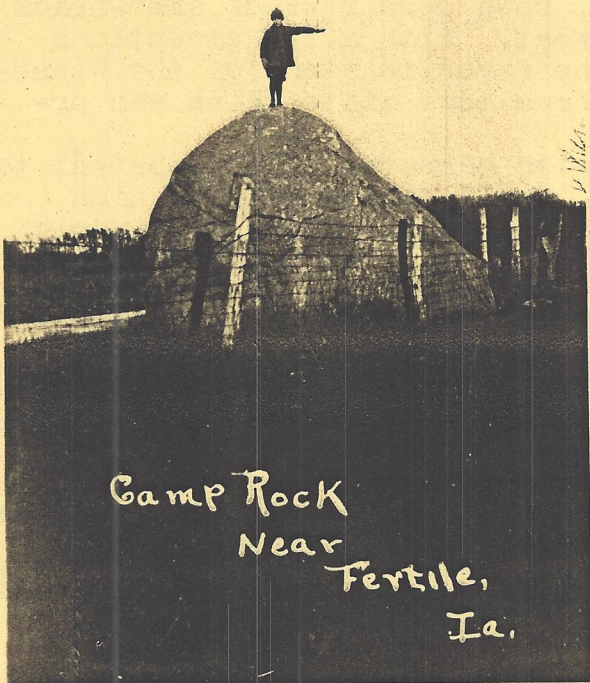 Camp Rock
Near
Fertile,
Ia.